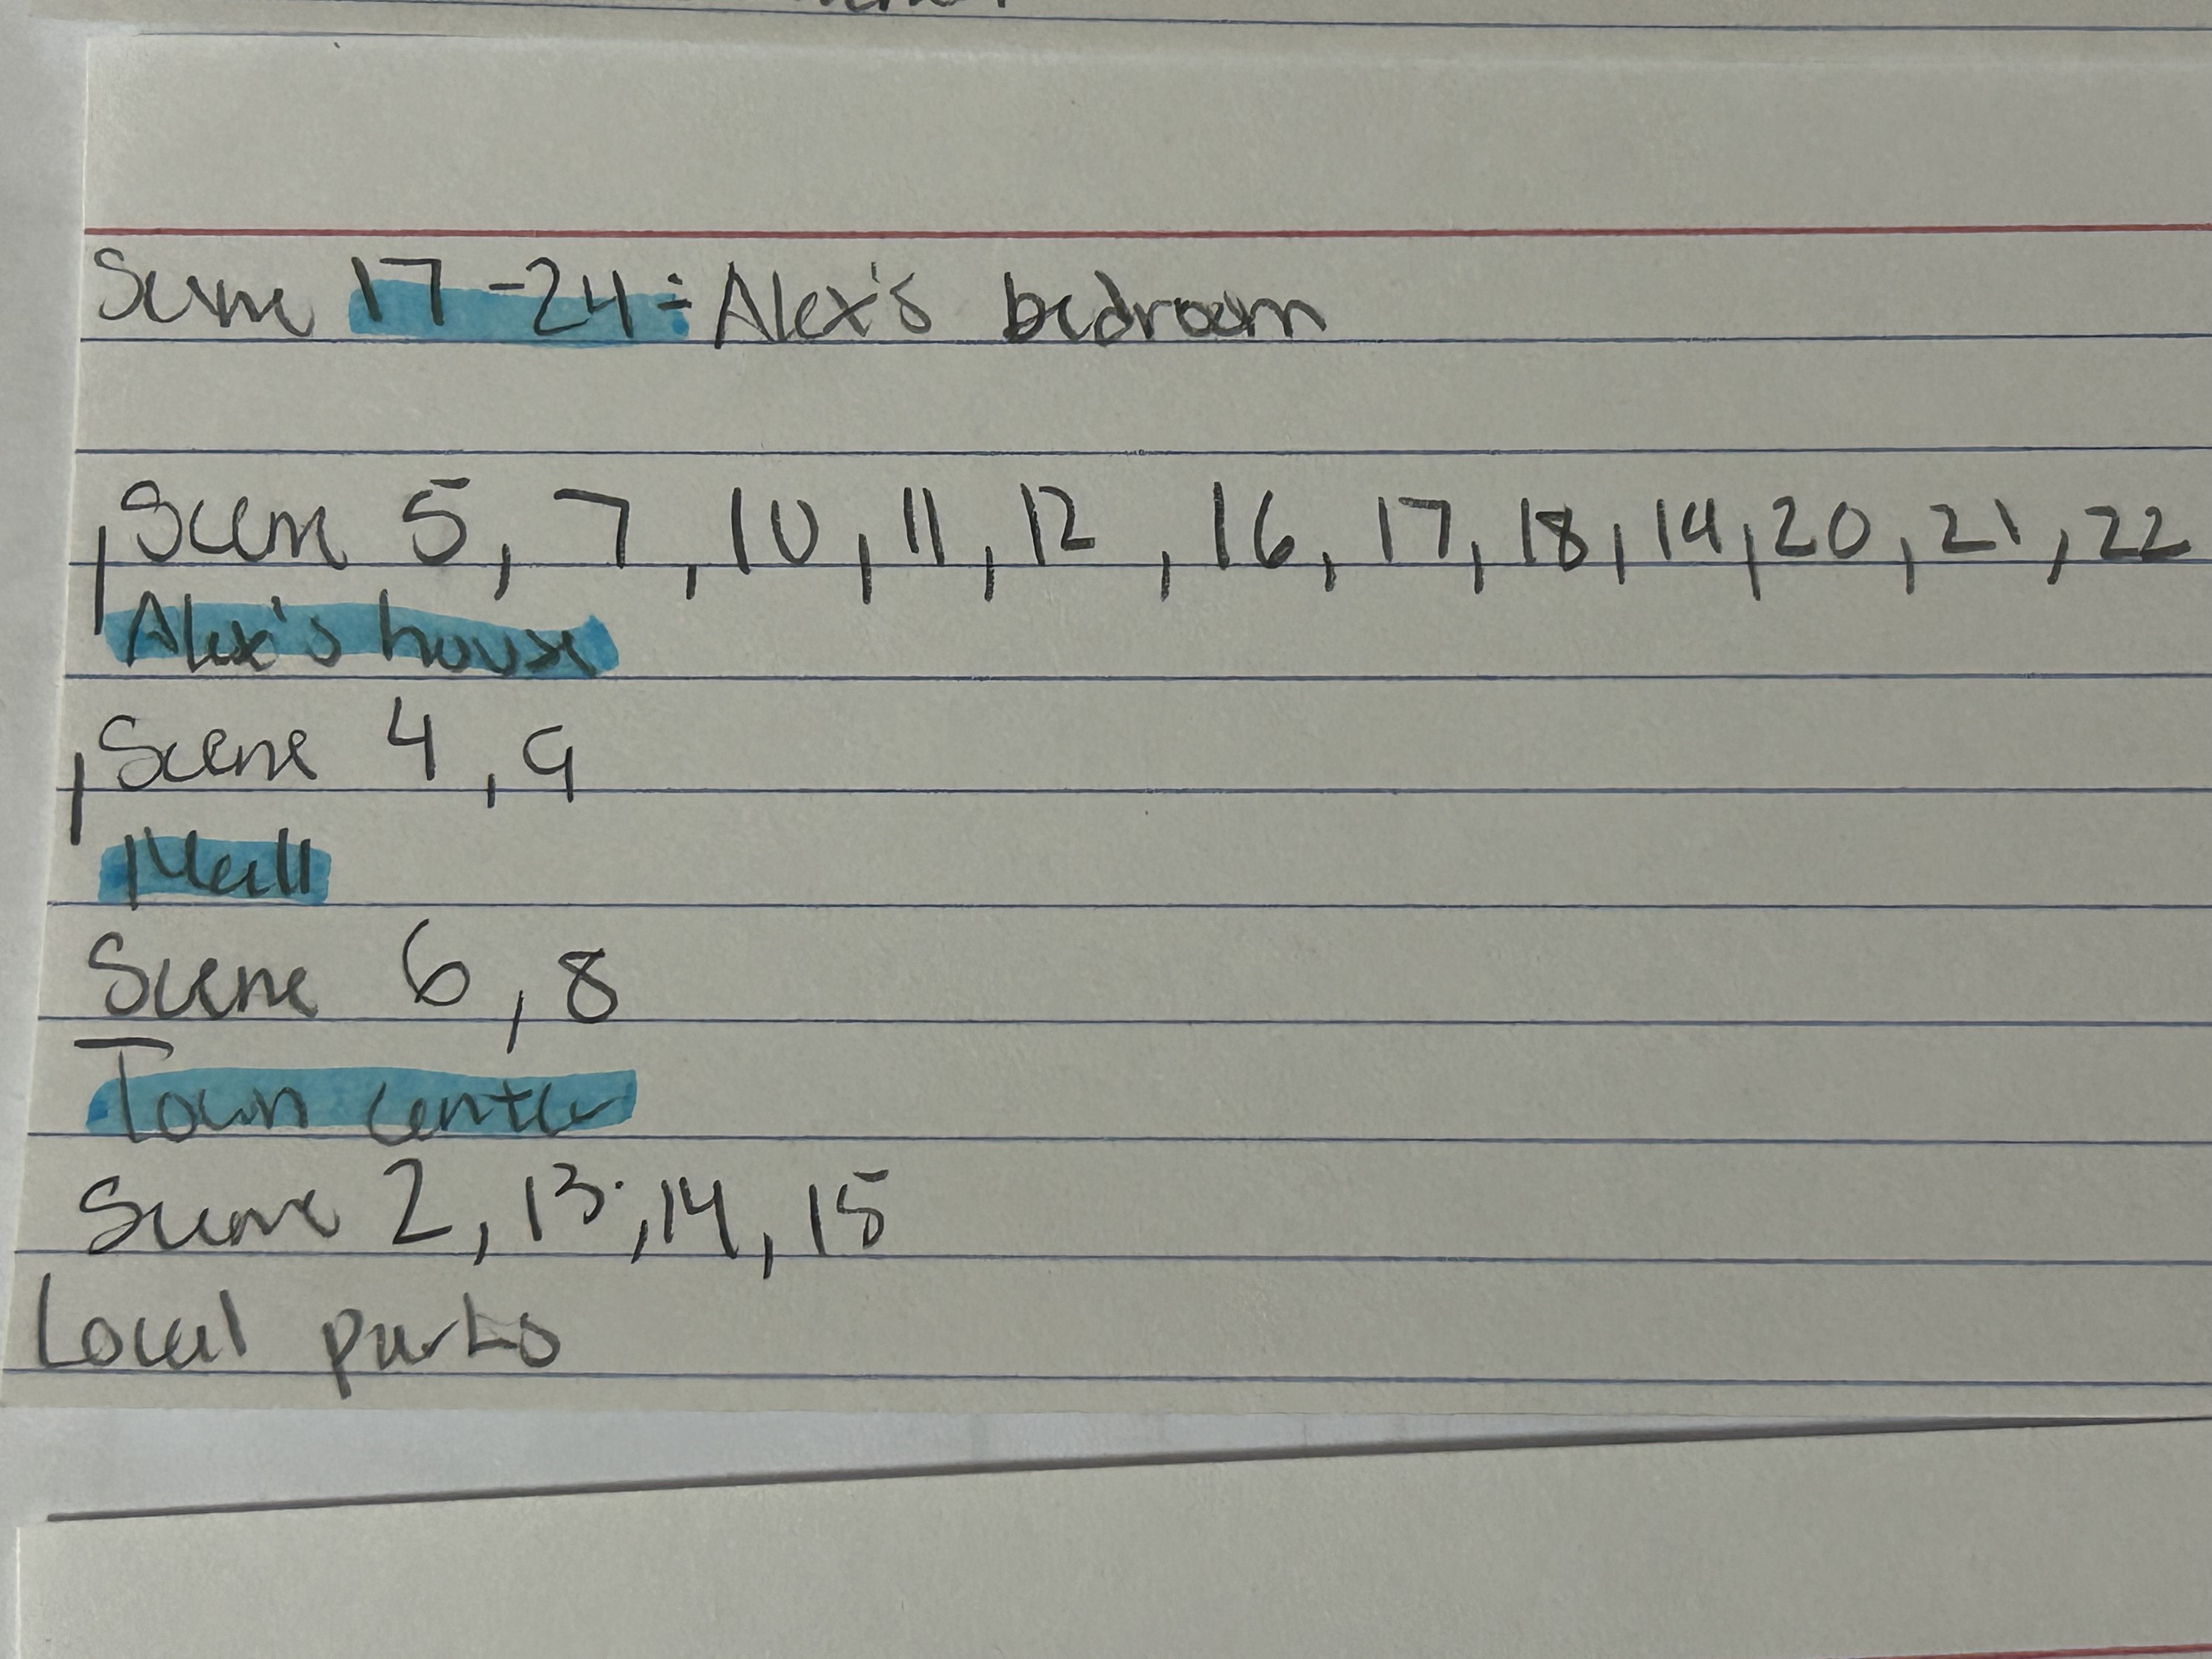 Scene 17-24: Alex's bedroom
Scene 5, 7, 10, 11, 12, 16, 17, 18, 19, 20, 21, 22
Alex's house
Scene 4, 9
Mall
Scene 6, 8
Town center
Scene 2, 13, 14, 15
Local parks